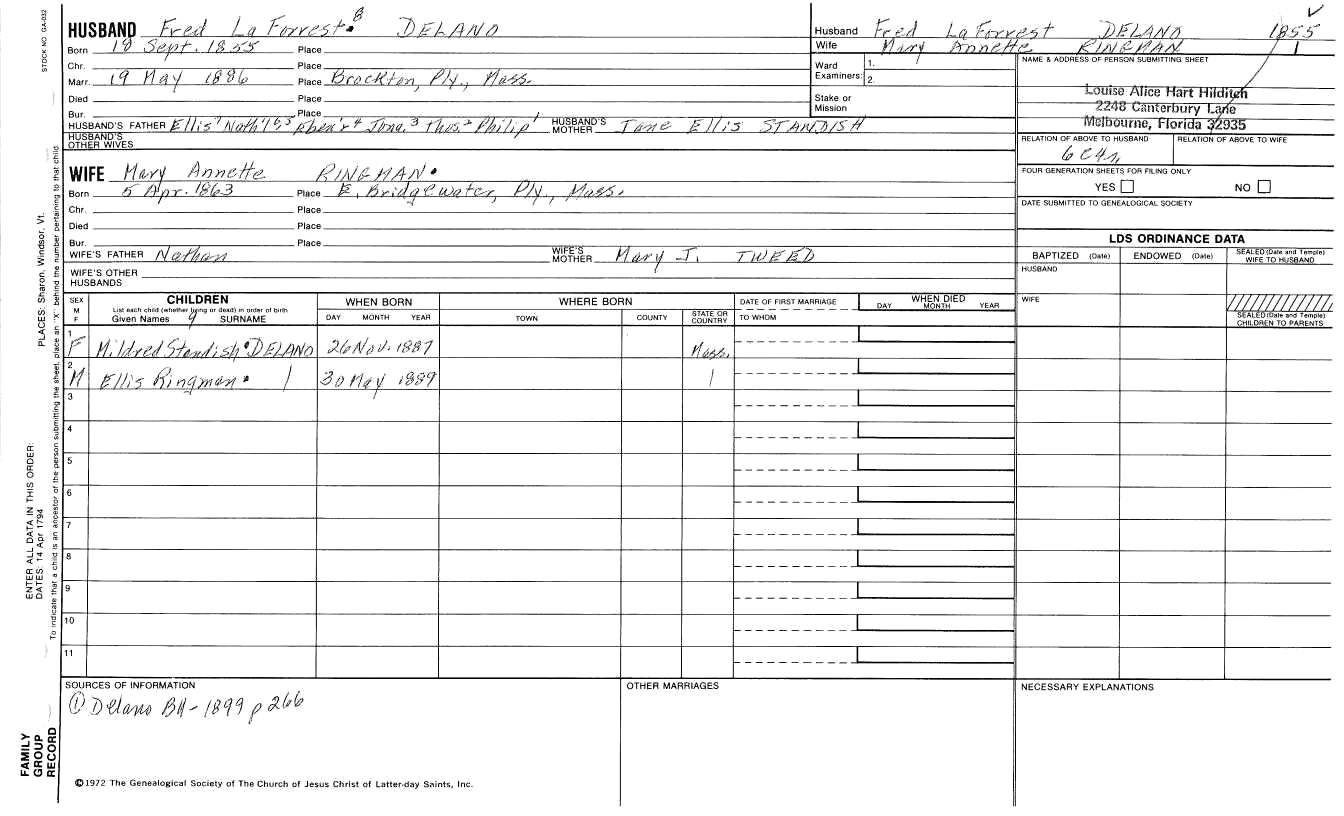 STOCK NO. GA-032
HUSBAND Fred La Forrest 8 DELANO
Born 18 Sept. 1855 Place
Chr. Place
Marr. 19 May 1886 Place Brockton, Ply., Mass.
Died Place
Bur. Place
HUSBAND'S FATHER Ellis 7 Nath'l 6 5 Eben'r 4 Jona. 3 Thos. 2 Philip 1 HUSBAND'S MOTHER Jane Ellis STANDISH
HUSBAND'S OTHER WIVES
WIFE Mary Annette RINGMAN
Born 5 Apr. 1863 Place E. Bridgewater, Ply., Mass.
Chr. Place
Died Place
Bur. Place
WIFE'S FATHER Nathan WIFE'S MOTHER Mary J. TWEED
WIFE'S OTHER HUSBANDS
Husband Fred La Forrest DELANO 1855
Wife Mary Annette RINGMAN 1
Ward Examiners: 1. 2.
Stake or Mission
NAME & ADDRESS OF PERSON SUBMITTING SHEET
Louise Alice Hart Hilditch
2248 Canterbury Lane
Melbourne, Florida 32935
RELATION OF ABOVE TO HUSBAND RELATION OF ABOVE TO WIFE
6C4r
FOUR GENERATION SHEETS FOR FILING ONLY
YES NO
DATE SUBMITTED TO GENEALOGICAL SOCIETY
LDS ORDINANCE DATA
BAPTIZED (Date) ENDOWED (Date) SEALED (Date and Temple) WIFE TO HUSBAND
HUSBAND
WIFE
SEALED (Date and Temple) CHILDREN TO PARENTS
SEX M F
CHILDREN
List each child (whether living or dead) in order of birth
Given Names 9 SURNAME
WHEN BORN
DAY MONTH YEAR
WHERE BORN
TOWN COUNTY STATE OR COUNTRY
DATE OF FIRST MARRIAGE
TO WHOM
WHEN DIED
DAY MONTH YEAR
1 F Mildred Standish DELANO 26 Nov. 1887 Mass.
2 M Ellis Ringman 30 May 1889
3
4
5
6
7
8
9
10
11
SOURCES OF INFORMATION
① Delano BH - 1899 p 266
OTHER MARRIAGES
NECESSARY EXPLANATIONS
©1972 The Genealogical Society of The Church of Jesus Christ of Latter-day Saints, Inc.
FAMILY
GROUP
RECORD
ENTER ALL DATA IN THIS ORDER:
DATES: 14 Apr 1794 PLACES: Sharon, Windsor, Vt.
To indicate that a child is an ancestor of the person submitting the sheet, place an "X" behind the number pertaining to that child.